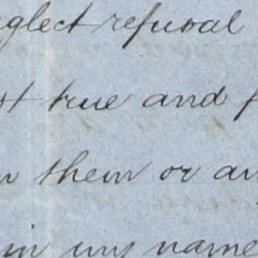 glect refusal
st true and f
them or an
in my name